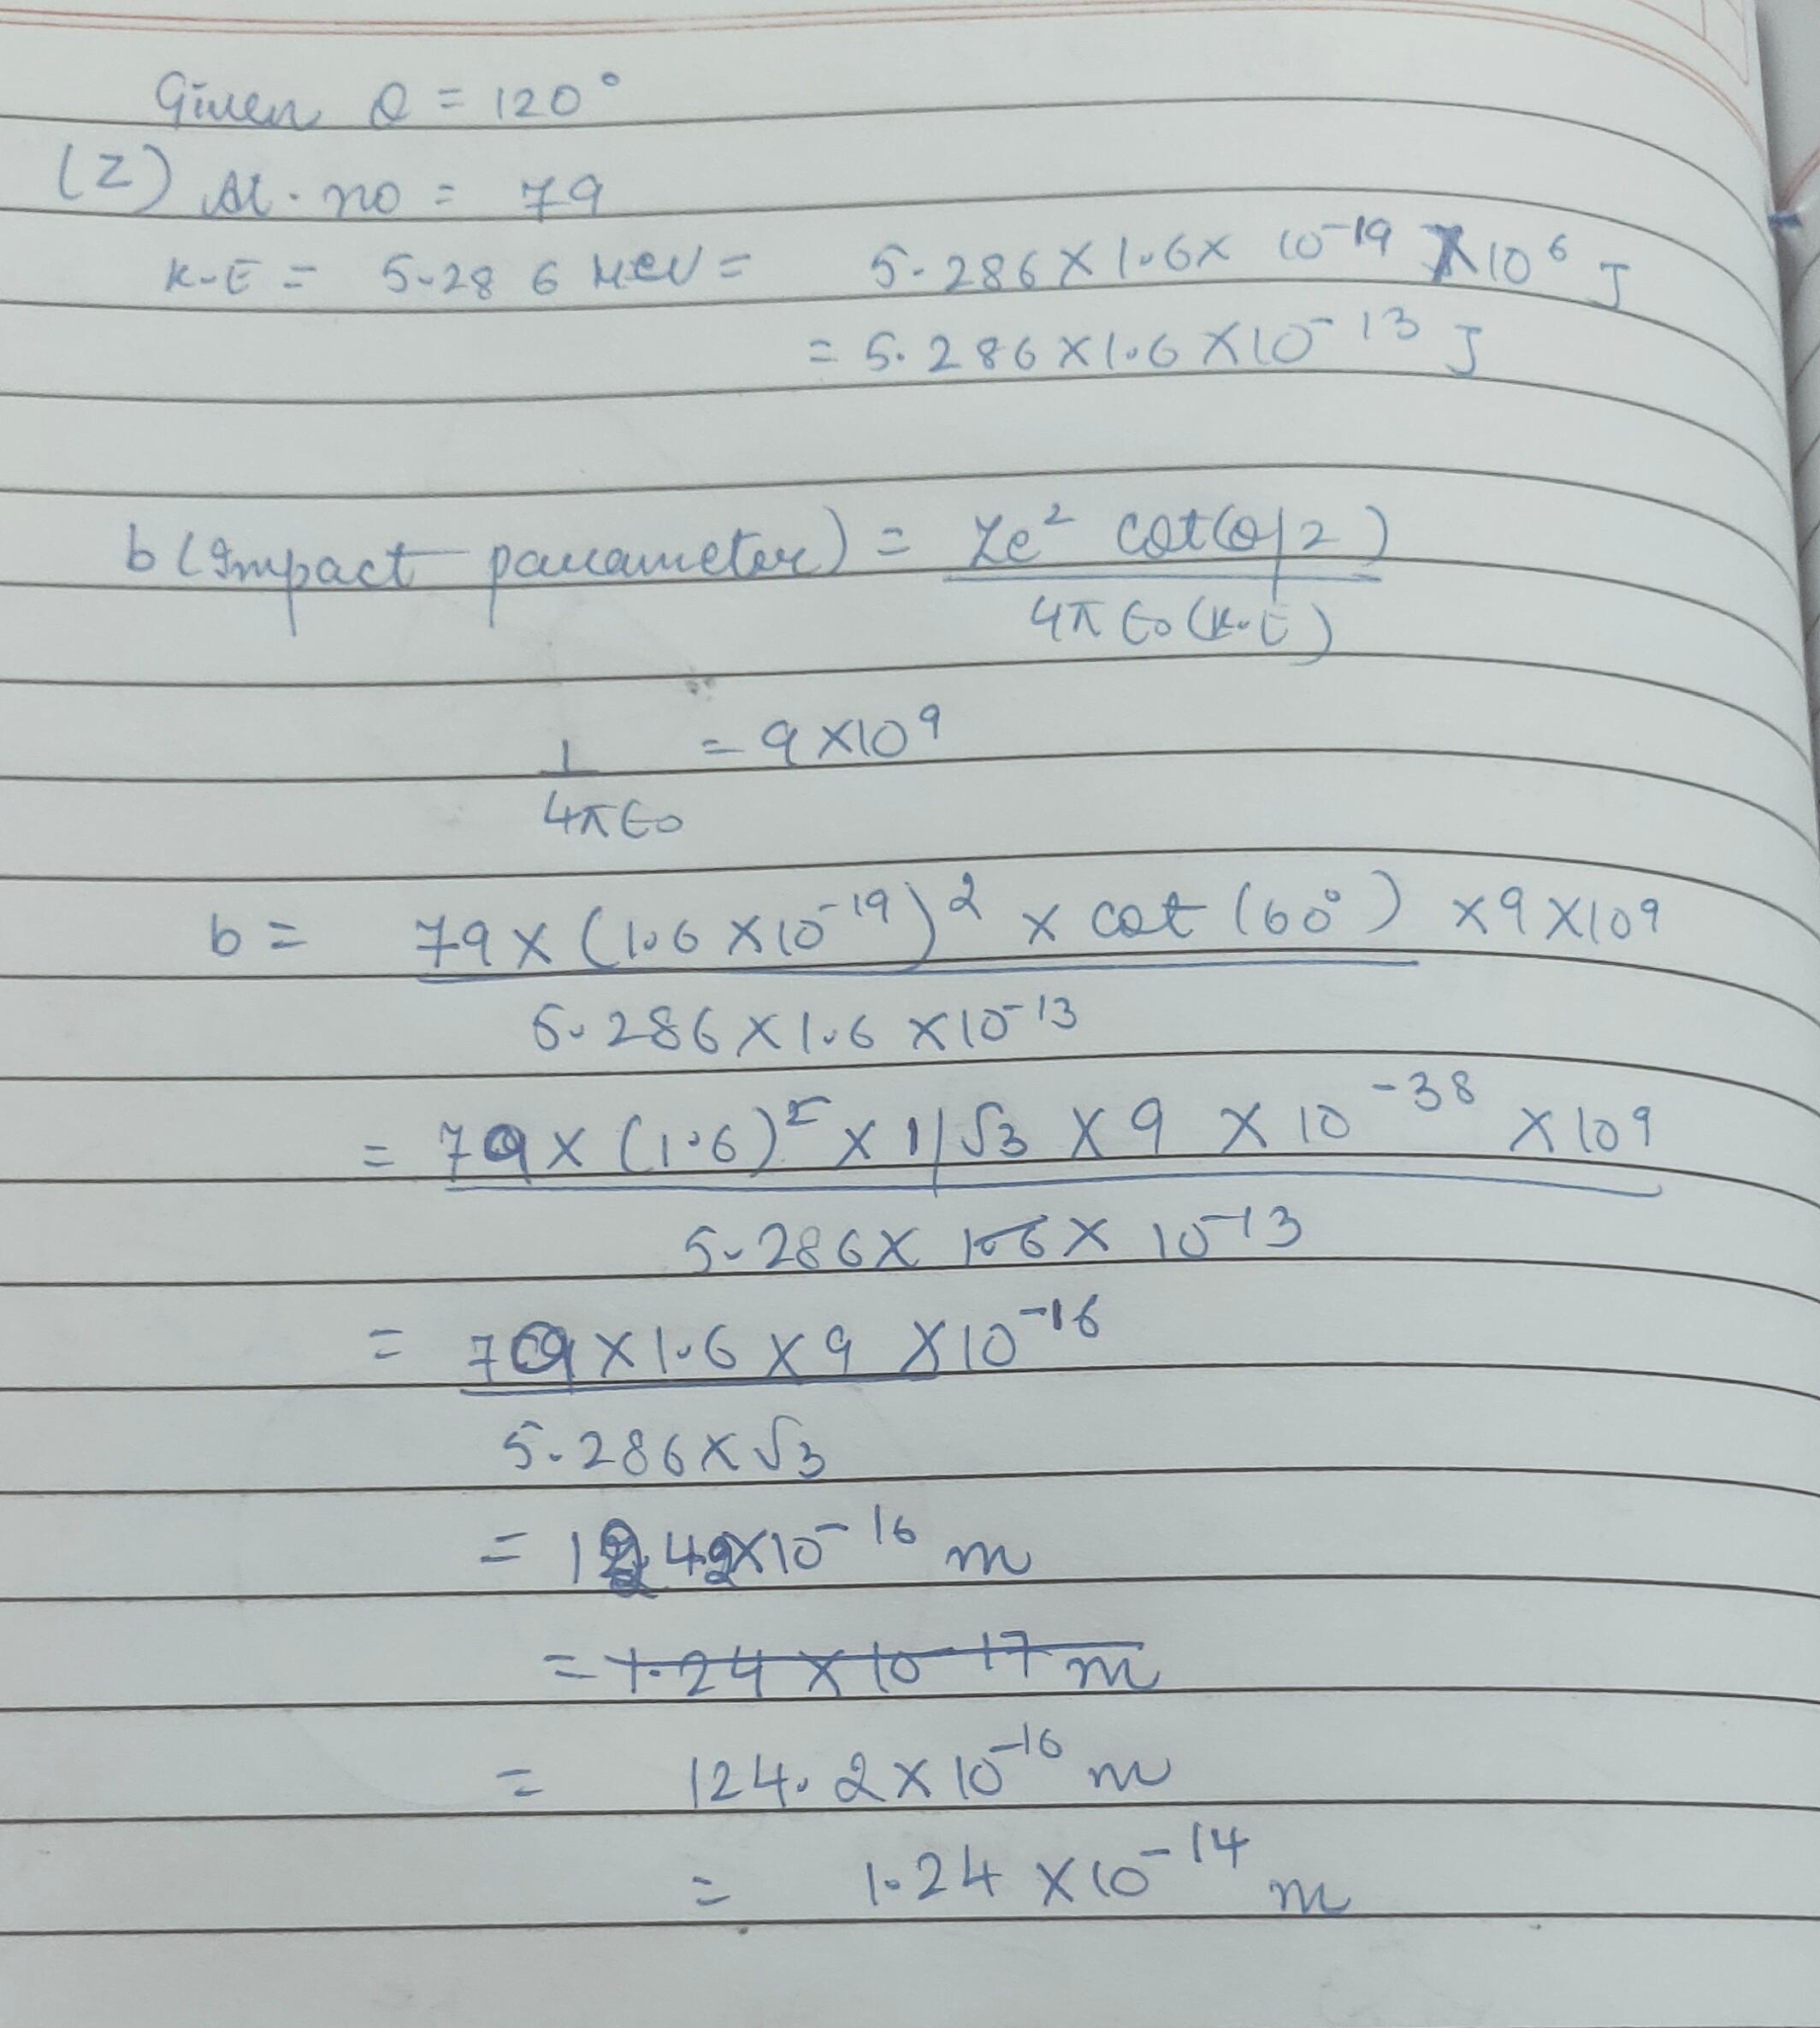 Given θ = 120°
(Z) At. no = 79
K.E = 5.286 MeV = 5.286 × 1.6 × 10⁻¹⁹ × 10⁶ J
= 5.286 × 1.6 × 10⁻¹³ J
b (Impact parameter) = Ze² cot(θ/2)
4π ε₀ (K.E)
1 = 9 × 10⁹
4π ε₀
b = 79 × (1.6 × 10⁻¹⁹)² × cot (60°) × 9 × 10⁹
5.286 × 1.6 × 10⁻¹³
= 79 × (1.6)² × 1/√3 × 9 × 10⁻³⁸ × 10⁹
5.286 × 1.6 × 10⁻¹³
= 79 × 1.6 × 9 × 10⁻¹⁶
5.286 × √3
= 124.2 × 10⁻¹⁶ m
= 1.24 × 10⁻¹⁷ m
= 124.2 × 10⁻¹⁶ m
= 1.24 × 10⁻¹⁴ m